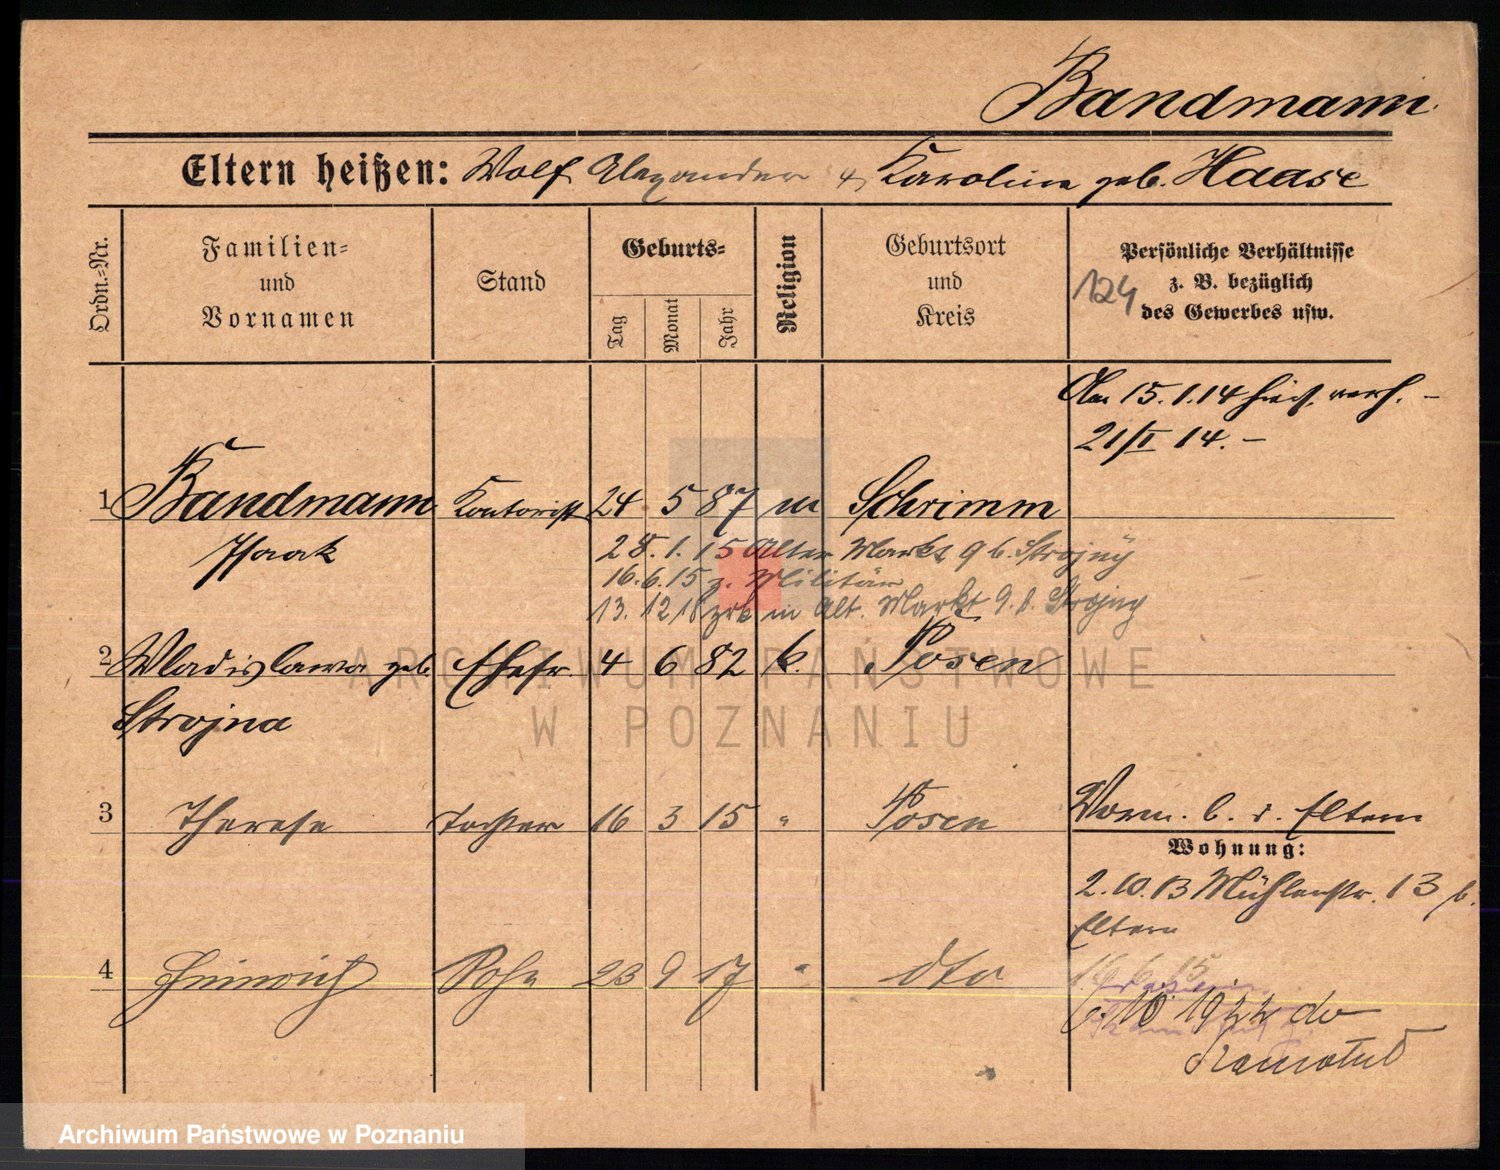 Bandmann
Eltern heißen: Wolf Alexander & Karoline geb. Haase
Ordn.-Nr.
Familien-
und
Vornamen
Stand
Geburts-
Tag
Monat
Jahr
Religion
Geburtsort
und
Kreis
Persönliche Verhältnisse
z. B. bezüglich
des Gewerbes usw.
124
Am 15.1.14 hies. verh. –
21/I 14. –
1 Bandmann Kontorist 24 5 87 m Schrimm
Isaak
28.1.15 Alter Markt 9 b. Strojny
16.6.15 z. Militär
13.12.18 zrk in Alt. Markt 9. b. Strojny
2 Wladislawa geb. Ehefr. 4 6 82 k. Posen
Strojna
3 Therese Tochter 16 3 15 " Posen
Vorm. b. d. Eltern
Wohnung:
2.10.13 Mühlenstr. 13 b.
Eltern
4 Heinrich Sohn 23 9 17 " dto
16.6.15
10 1922 do
ARCHIWUM PAŃSTWOWE
W POZNANIU
Archiwum Państwowe w Poznaniu